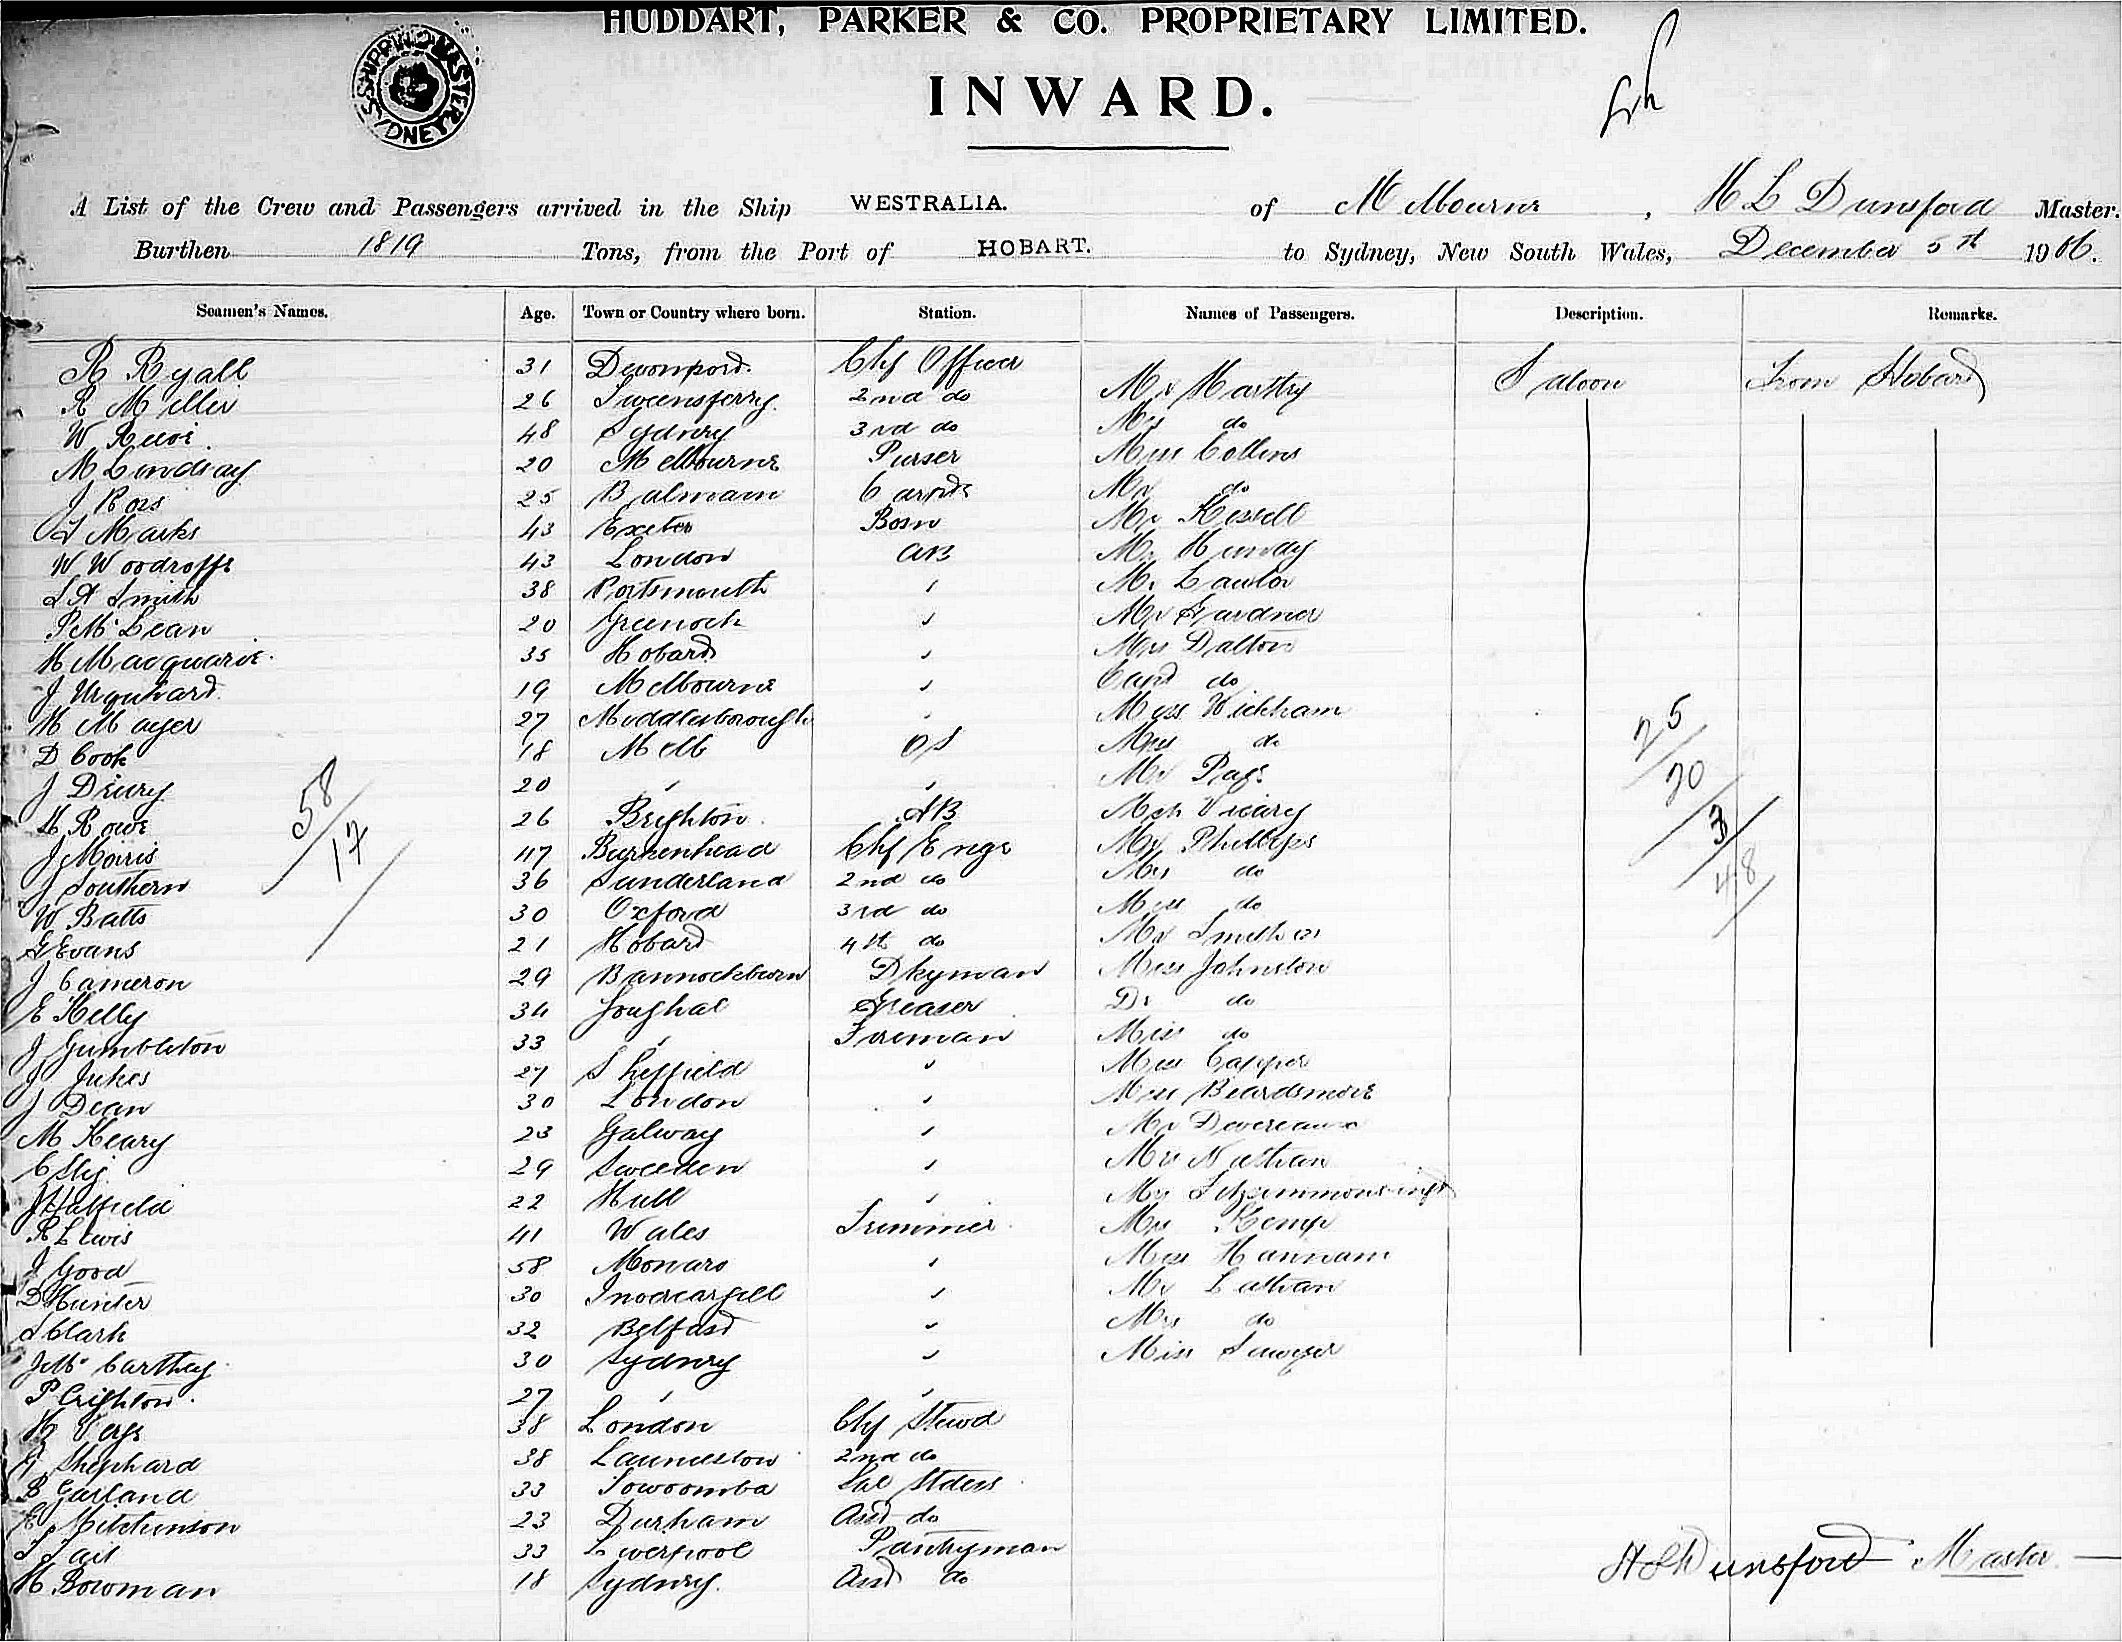 HUDDART, PARKER & CO. PROPRIETARY LIMITED.
SHIPPING MASTER SYDNEY
INWARD.
A List of the Crew and Passengers arrived in the Ship WESTRALIA. of Melbourne, H L Dunsford Master.
Burthen 1819 Tons, from the Port of HOBART. to Sydney, New South Wales, December 5th 1906.
Seamen's Names. Age. Town or Country where born. Station. Names of Passengers. Description. Remarks.
R Ryall 31 Devonport. Chf Officer Mr Saloon From Hobart
R Miller 26 2nd do Mrs do
W 48 Sydney 3rd do Miss Collins
M Lindsay 20 Melbourne Purser Mr do
J Ross 25 Balmain Mr
Marks 43 Exeter Bosn Mr Hundy
W Woodroffe 43 London AB Mr Lawlor
Smith 38 Portsmouth " Mr Gardner
P McLean 20 Greenock " Mrs Dalton
H Macquarie. 35 Hobart " and do
J Urquhart. 19 Melbourne " Miss Wickham
H Mayer 27 Middlesborough " do
D Cook 18 Melb OS Mr Page
J Drury 20 " " Vicary
H Rowe 26 Brighton. AB Mr Phillips
J Morris 47 Birkenhead Chf Engr Mrs do
J Southern 36 Sunderland 2nd do Miss do
W Batts 30 Oxford 3rd do Mr
G Evans 21 Hobart 4th do Miss Johnston
J Cameron 29 Bannockburn Dkyman Dr do
E Kelly 34 Youghal Greaser Miss do
J Gumbleton 33 " Fireman Miss Capper
J Jukes 27 Sheffield " Miss Beardsmore
J Dean 30 London " Mr Devereaux
M Keary 23 Galway " Nathan
29 Sweeden "
J Hatfield 22 Hull " Kemp
R Lewis 41 Wales Trimmer Miss Hannam
J Good 58 Monaro " Mr Lathan
D Hunter 30 Invercargill " Mrs do
Clark 32 Belfast " Miss Sawyer
J McCarthey 30 Sydney "
P Crighton. 27 " "
H 38 London Chf Stewd
Shephard 38 Launceston 2nd do
B Garland 33 Towoomba Sal Stdess
E Mitchinson 23 Durham Asst do
T Tait 33 Liverpool Pantryman
H Bowman 18 Sydney. Asst do
58/17/
25/20/3/48/
H L Dunsford Master